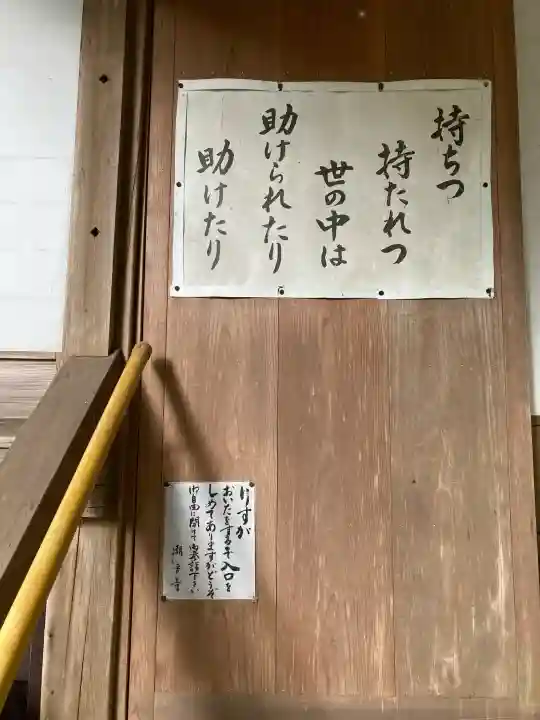 持ちつ
持たれつ
世の中は
助けられたり
助けたり
りすが
おいたをするので入口を
しめてありますがどうぞ
御自由に開けて御参詣下さい